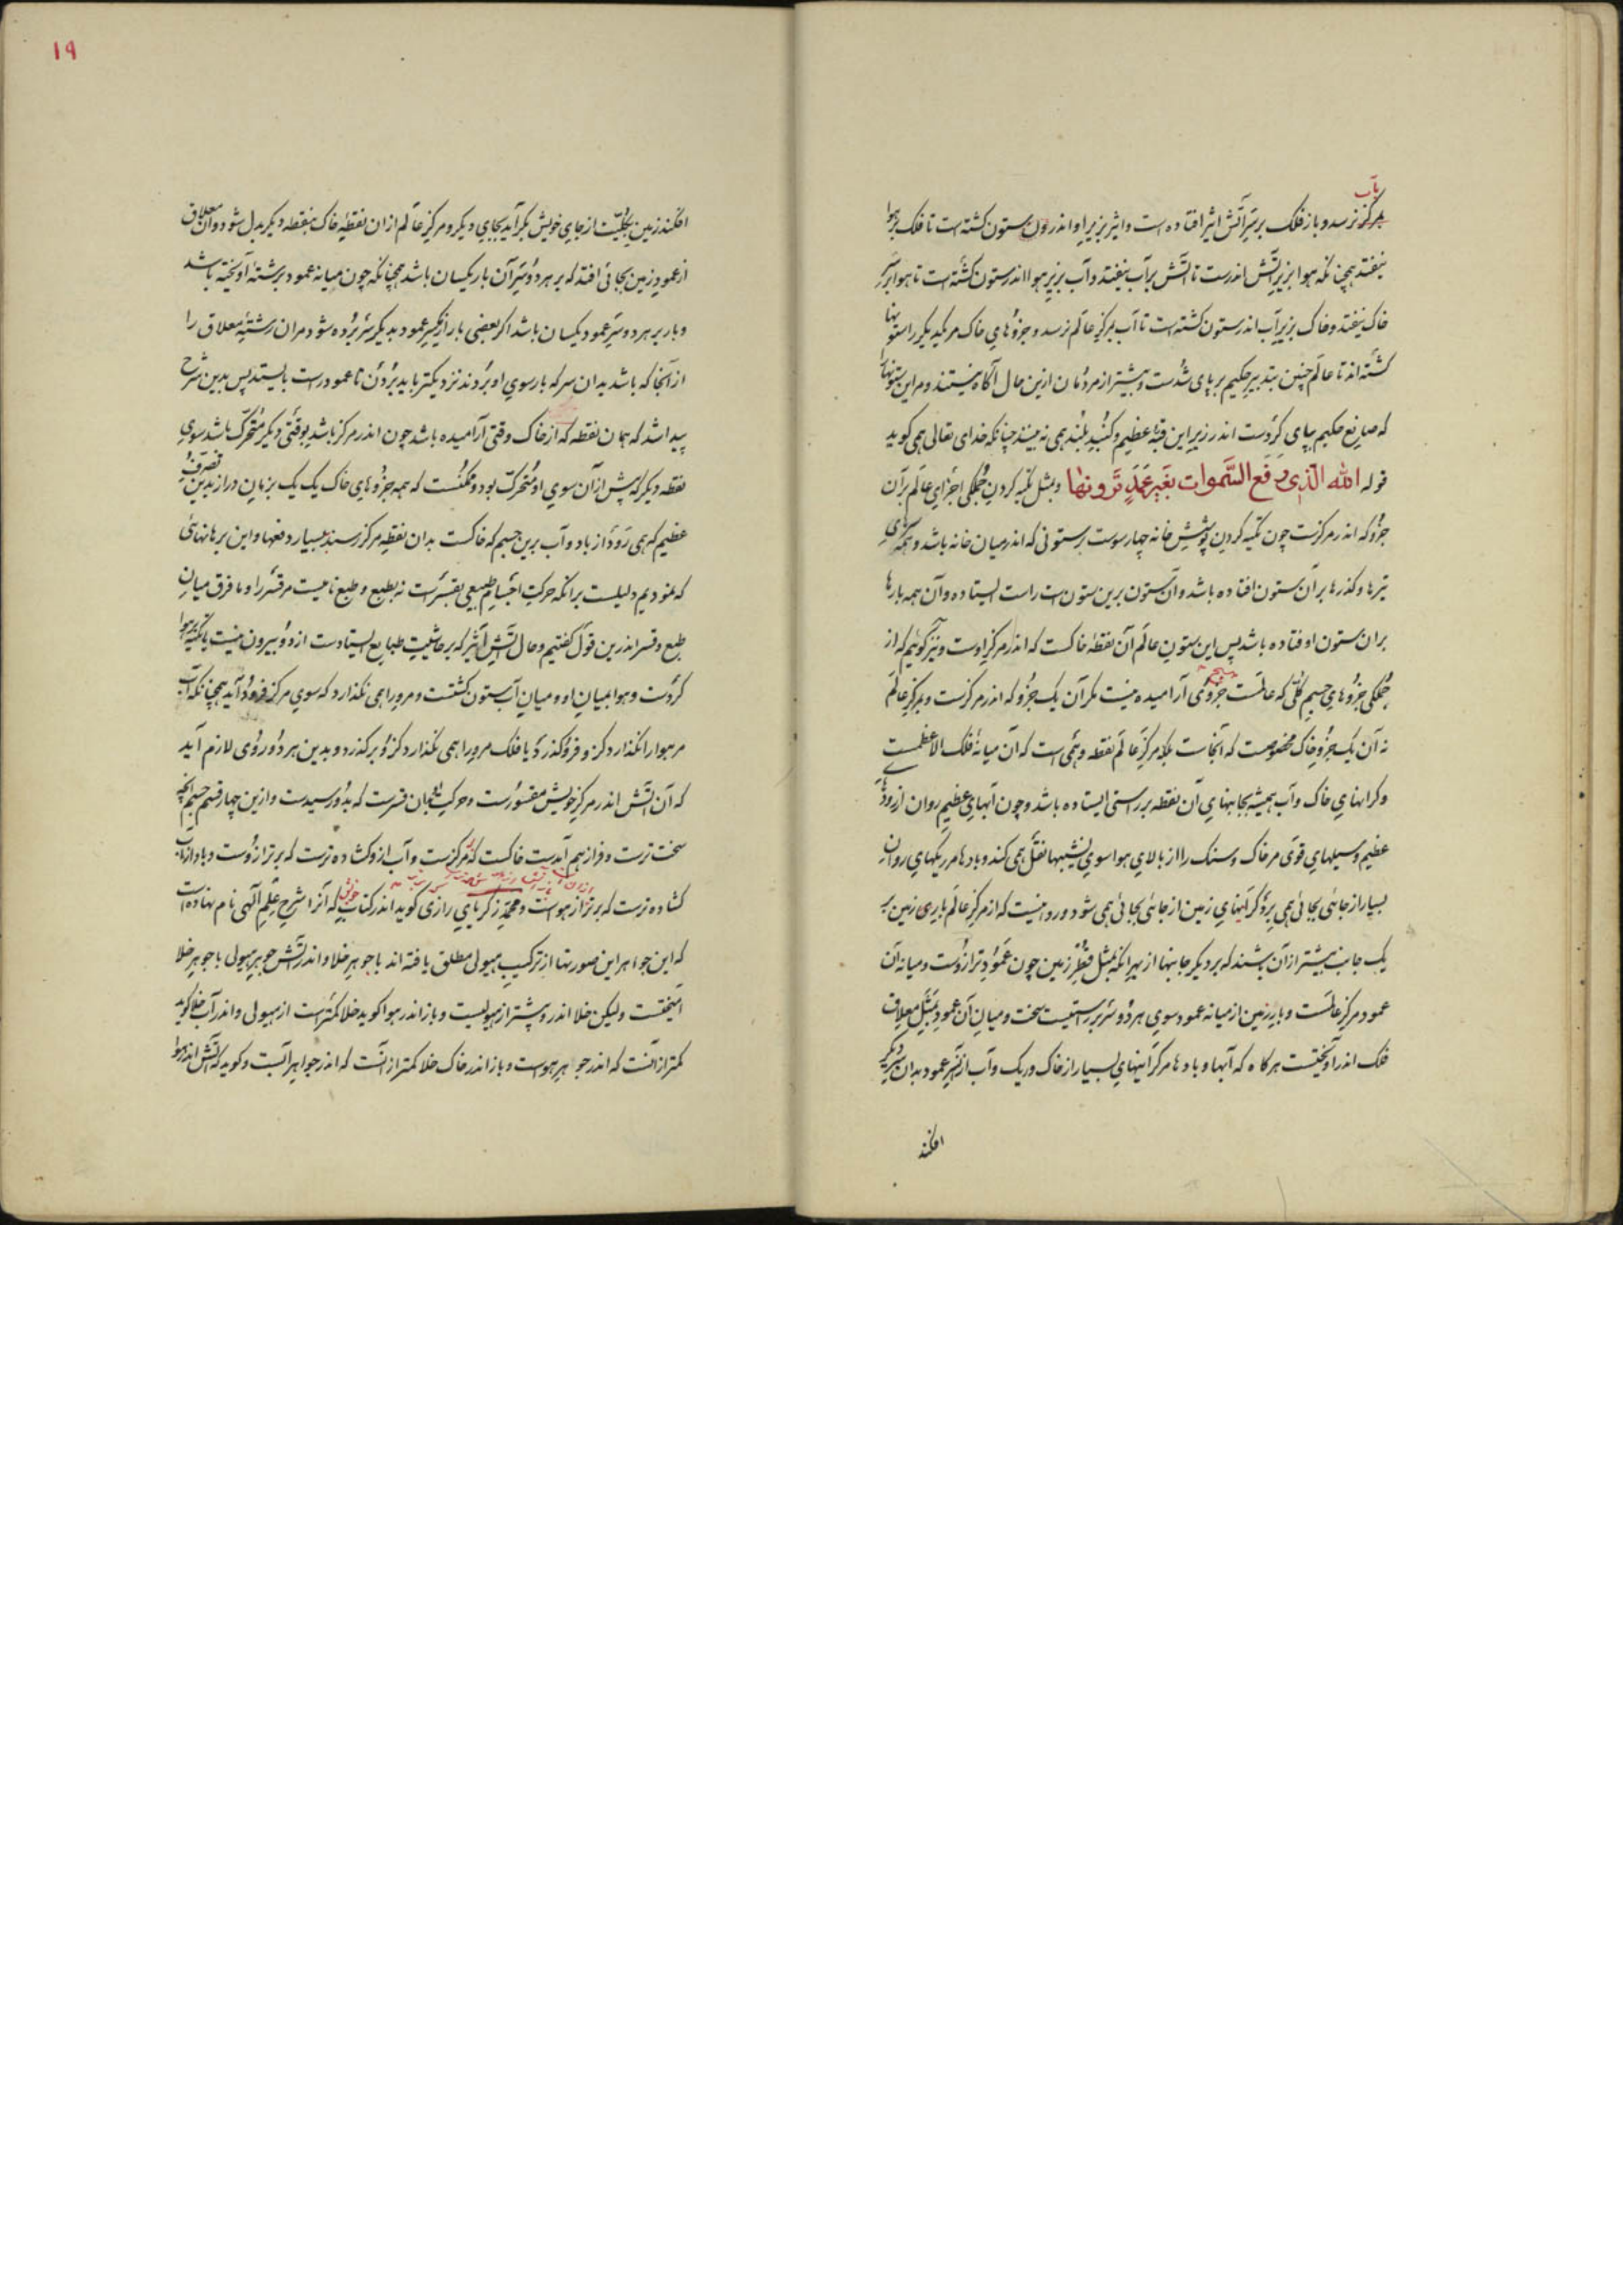 بمرکز نرسد و باز فلک بر سر آتش اثیر افتاده است و اثیر بزیر او اندر ون ستون کشته است تا فلک بر هوا
نیفتد همچنانکه هوا بزیر آتش اندرست تا آتش بر آب نیفتد و آب بزیر هوا اندر ستون کشته است تا هوا بر
خاک نیفتد و خاک بزیر آب اندر ستون کشته است تا آب بمرکز عالم نرسد و جزوهای خاک مر یکدیکر را ستونها
کشته اند تا عالم چنین بتدبیر حکیم بر پای شدست و بیشتر از مردمان ازین حال آکاه نیستند و مر این ستونها
که صانع حکیم بپای کردست اندر زیر این قبه عظیم و کنبد بلند همی نه بینند چنانکه خدای تعالی همی کوید
قوله الله الذی رفع السموات بغیر عمد ترونها و بمثل تکیه کردن جملکی اجزای عالم بر آن
جزو که اندر مرکزست چون تکیه کردن پوشش خانه چهار سوست بر ستونی که اندر میان خانه باشد و همه
تیرها و کذرها بر آن ستون افتاده باشد و آن ستون برین ستون است راست ایستاده و آن همه بارها
بران ستون اوفتاده باشد پس این ستون عالم آن نقطه خاکست که اندر مرکز اوست و نیز کوئیم که از
جملکی جزوهای جسم کلی که عالمست جزوی آرامیده نیست مکر آن یک جزو که اندر مرکزست و مرکز عالم
نه آن یک جزو خاک مخصوصست که آنجاست بلکه مرکز عالم نقطه وهمی است که آن میانه فلک الاعظمست
و کرانهای خاک و آب همیشه بجانبهای آن نقطه بر راستی ایستاده باشد و چون آبهای عظیم روان از رودهای
عظیم و سیلهای قوی مر خاک و سنک را از بالای هوا سوی نشیبها نقل همی کند و بادها مر ریکهای روان
بسیار از جائی بجائی همی برد کرانیهای زمین از جائی بجائی همی شود و روا نیست که از مرکز عالم بایری زمین بر
یک جانب بیشتر از آن بشند که بر دیکر جانبها از بهر آنکه بمثل قطر زمین چون عمود ترازوست و میانه آن
عمود مرکز عالمست و بار زمین از میانه عمود سوی هر دو سر بر راستیست سخت و میان آن عمود بمثل معلاق
فلک اندر آویختست هرکاه که آبها و بادها مر کرانیهای بسیار از خاک و ریک و آب از آن سر عمود بدان سر دیکر
افکند
۱۹
افکند زمین بکلیت از جای خویش بکر آید بجای دیکر و مرکز عالم از ان نقطه خاک بنقطه دیکر بدل شود و آن معلاق
از عمود زمین بجائی افتد که بر هر دو سر آن بار یکسان باشد همچنانکه چون میانه عمود برشته آویخته باشد
و بار بر هر دو سر عمود یکسان باشد اکر بعضی بار از یکسر عمود بدیکر سر برده شود مر ان رشته معلاق را
از آنجا که باشد بدان سر که بار سوی او بردند نزدیکتر باید بردن تا عمود راست بایستد پس بدین شرح
پیدا شد که همان نقطه که از خاک وقتی آرامیده باشد چون اندر مرکز باشد بوقتی دیکر متحرک باشد سوی
نقطه دیکر که پیش از آن سوی او متحرک بود و ممکنست که همه جزوهای خاک یک یک بزمان دراز بدین تصرف
عظیم که همی رود از باد و آب برین جسم که خاکست بدان نقطه مرکز رسند بسیار دفعها و این برهانهای
که نمودیم دلیلست بر انکه حرکت اجسام طبیعی بقسرست نه بطبع و طبع نامیست مر قسر را و ما فرق میان
طبع و قسر اندرین قول کفتیم و حال آتش اثیر که بر حاشیت طبایع ایستادست از دو بیرون نیست یا تکیه بر هوا
کردست و هوا بمیان او و میان آب ستون کشتست و مرورا همی نکذارد که سوی مرکز فرود آید همچنانکه آب
مر هوا را نکذارد کز و فرو کذرد یا فلک مرورا همی نکذارد کزو بر کذرد و بدین هر دو روی لازم آید
که آن آتش اندر مرکز خویش مقسورست و حرکت بدان قسرست که بدو رسیدست و ازین چهار قسم جسم آنچه
سخت ترست و فراز هم آمدست خاکست که مرکزست و آب ازو کشاده ترست که برتر ازوست و باد از آب
کشاده ترست که برتر از هواست و محمد زکریای رازی کوید اندر کتاب خویش که آنرا شرح علم آلهی نام نهاده است
که این جواهر این صورتها از ترکیب هیولی مطلق یافته اند با جوهر خلا و اندر آتش جوهر هیولی با جوهر خلا
آمیختست ولیکن خلا اندر و بیشتر از هیولیست و باز اندر هوا کوید خلا کمترست از هیولی و اندر آب خلا کوید
کمتر از آنست که اندر جوهر هواست و باز اندر خاک خلا کمتر از آنست که اندر جواهر آبست و کوید که آتش اندر هوا